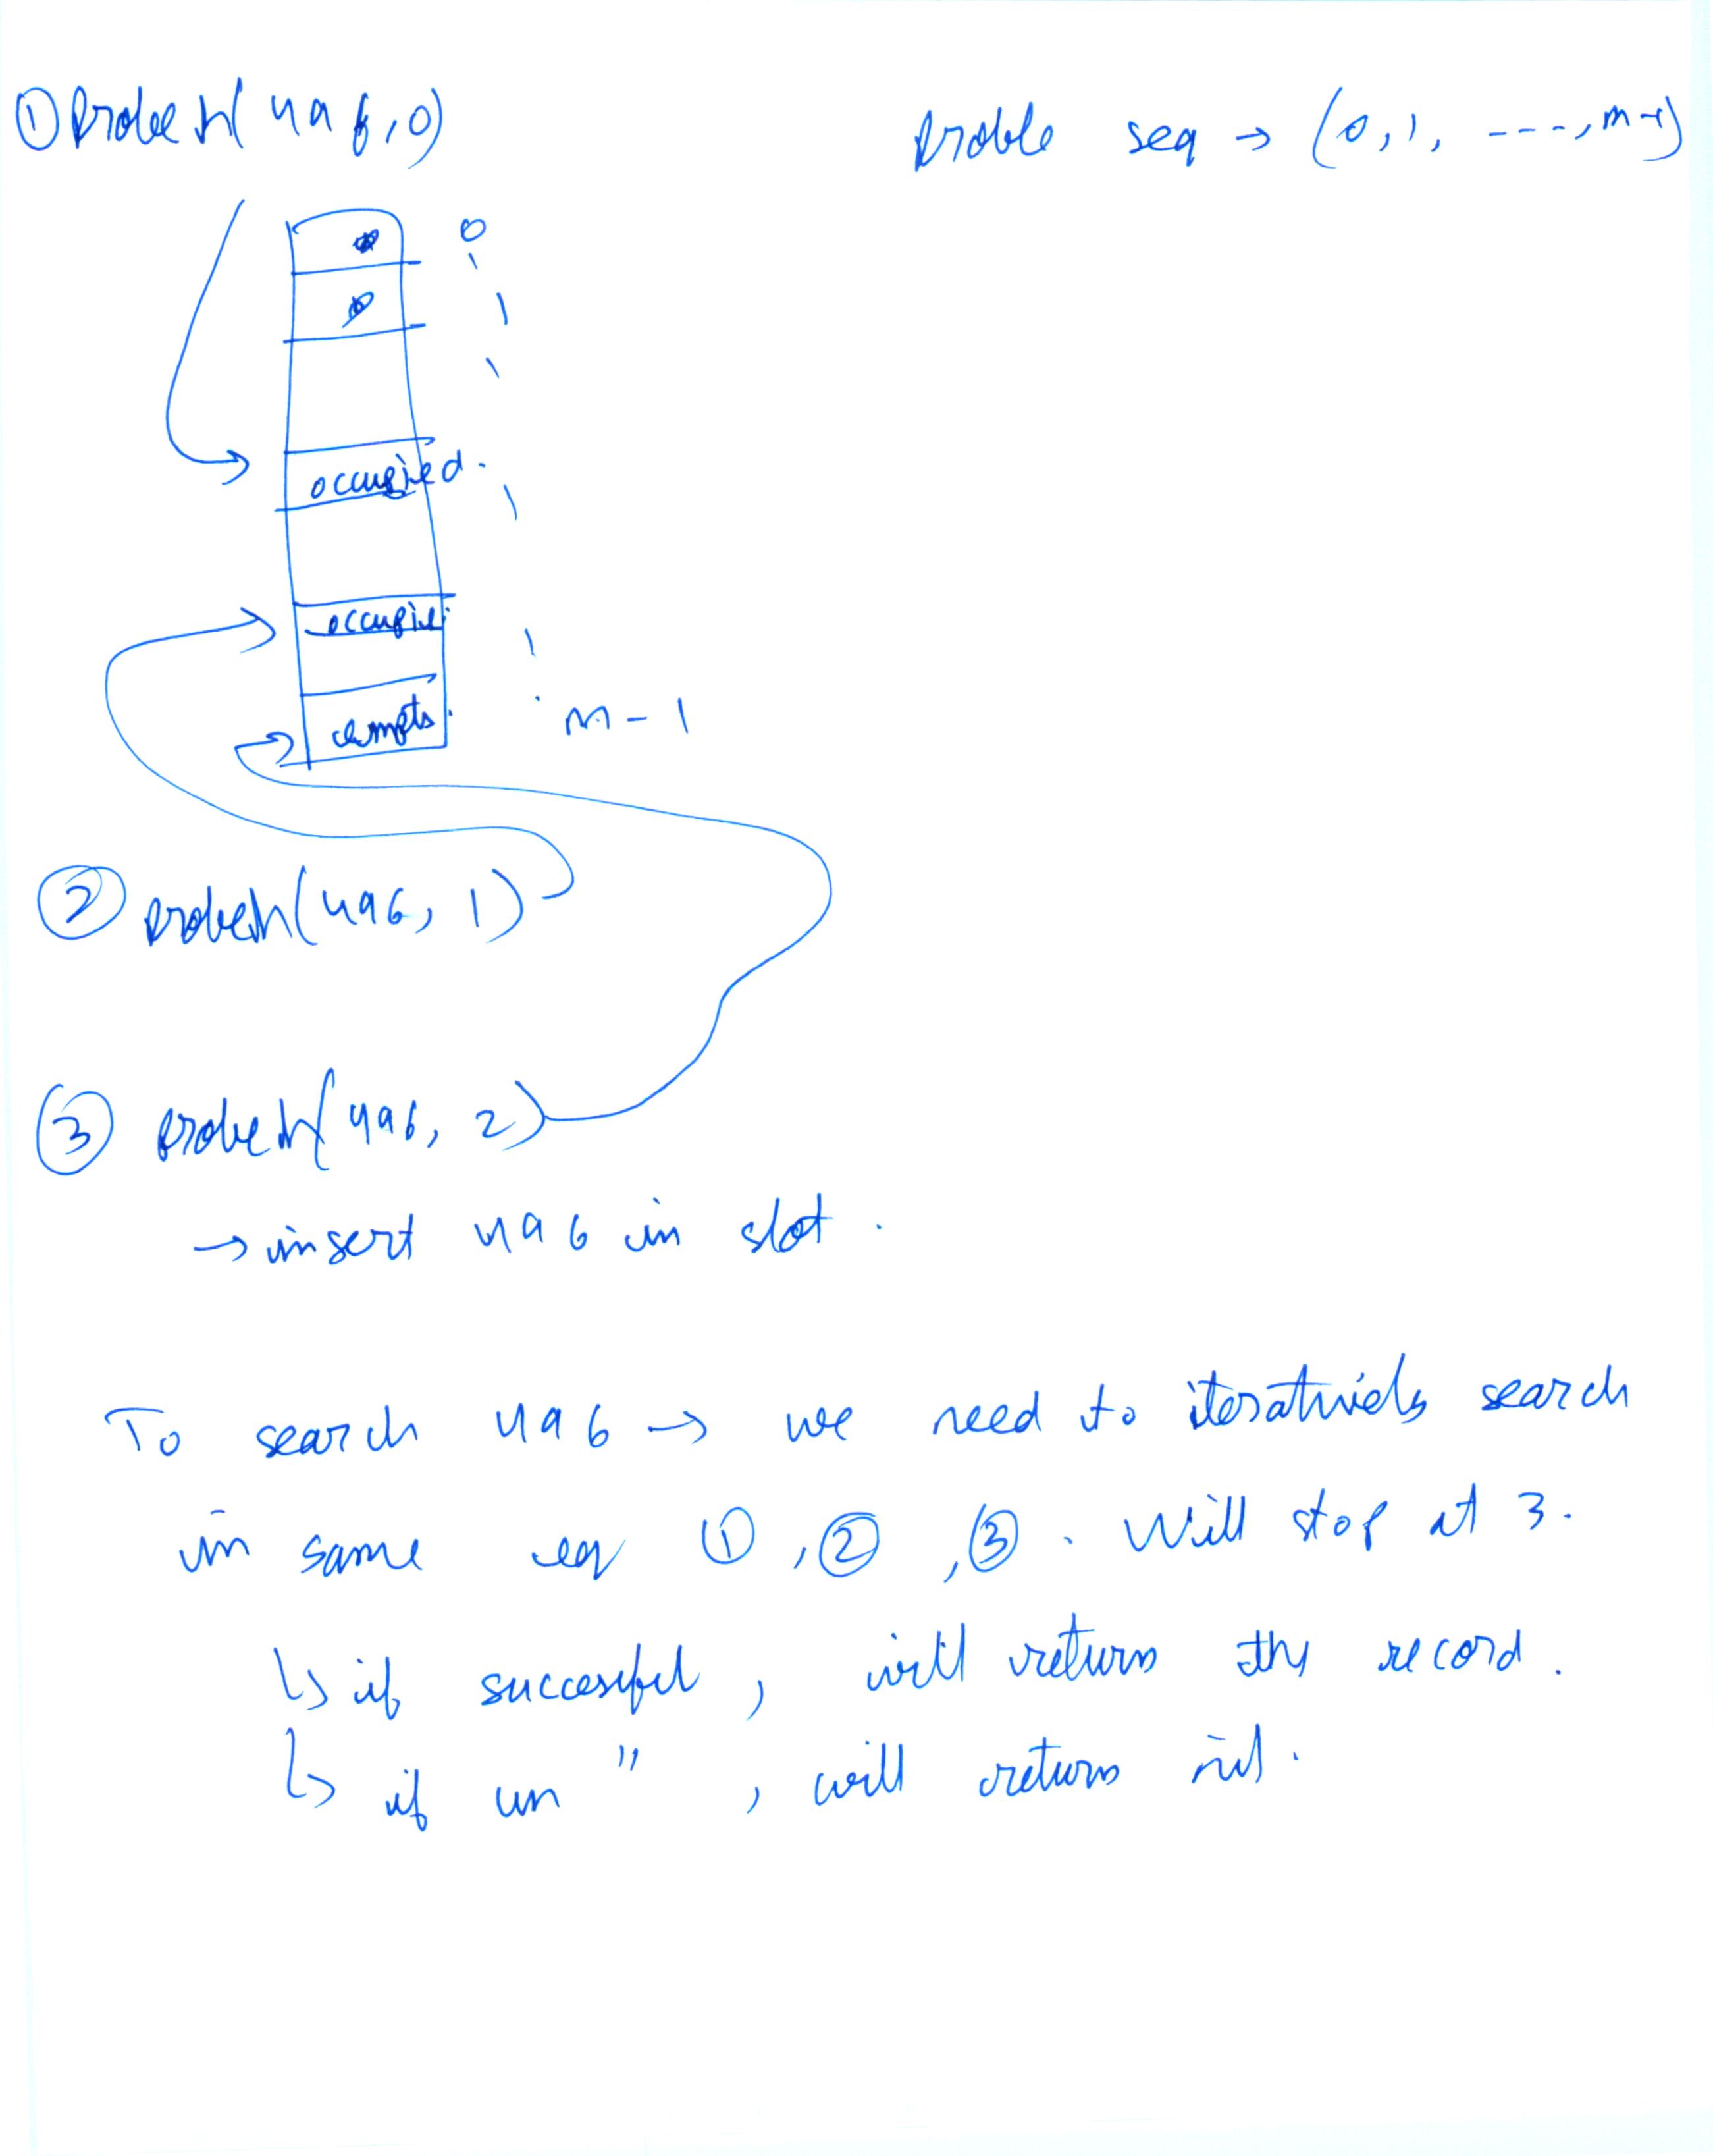 ① Probe h(496,0)
Probe seq → (0,1, ----, m-1)
0
occupied.
occupie.
empty.
m-1
② probe h(496, 1)
③ probe h(496, 2)
→ insert 496 in slot.
To search 496 → we need to iteratively search
in same seq ①, ②, ③. Will stop at 3.
↳ if succesful, will return the record.
↳ if un ", will return nil.